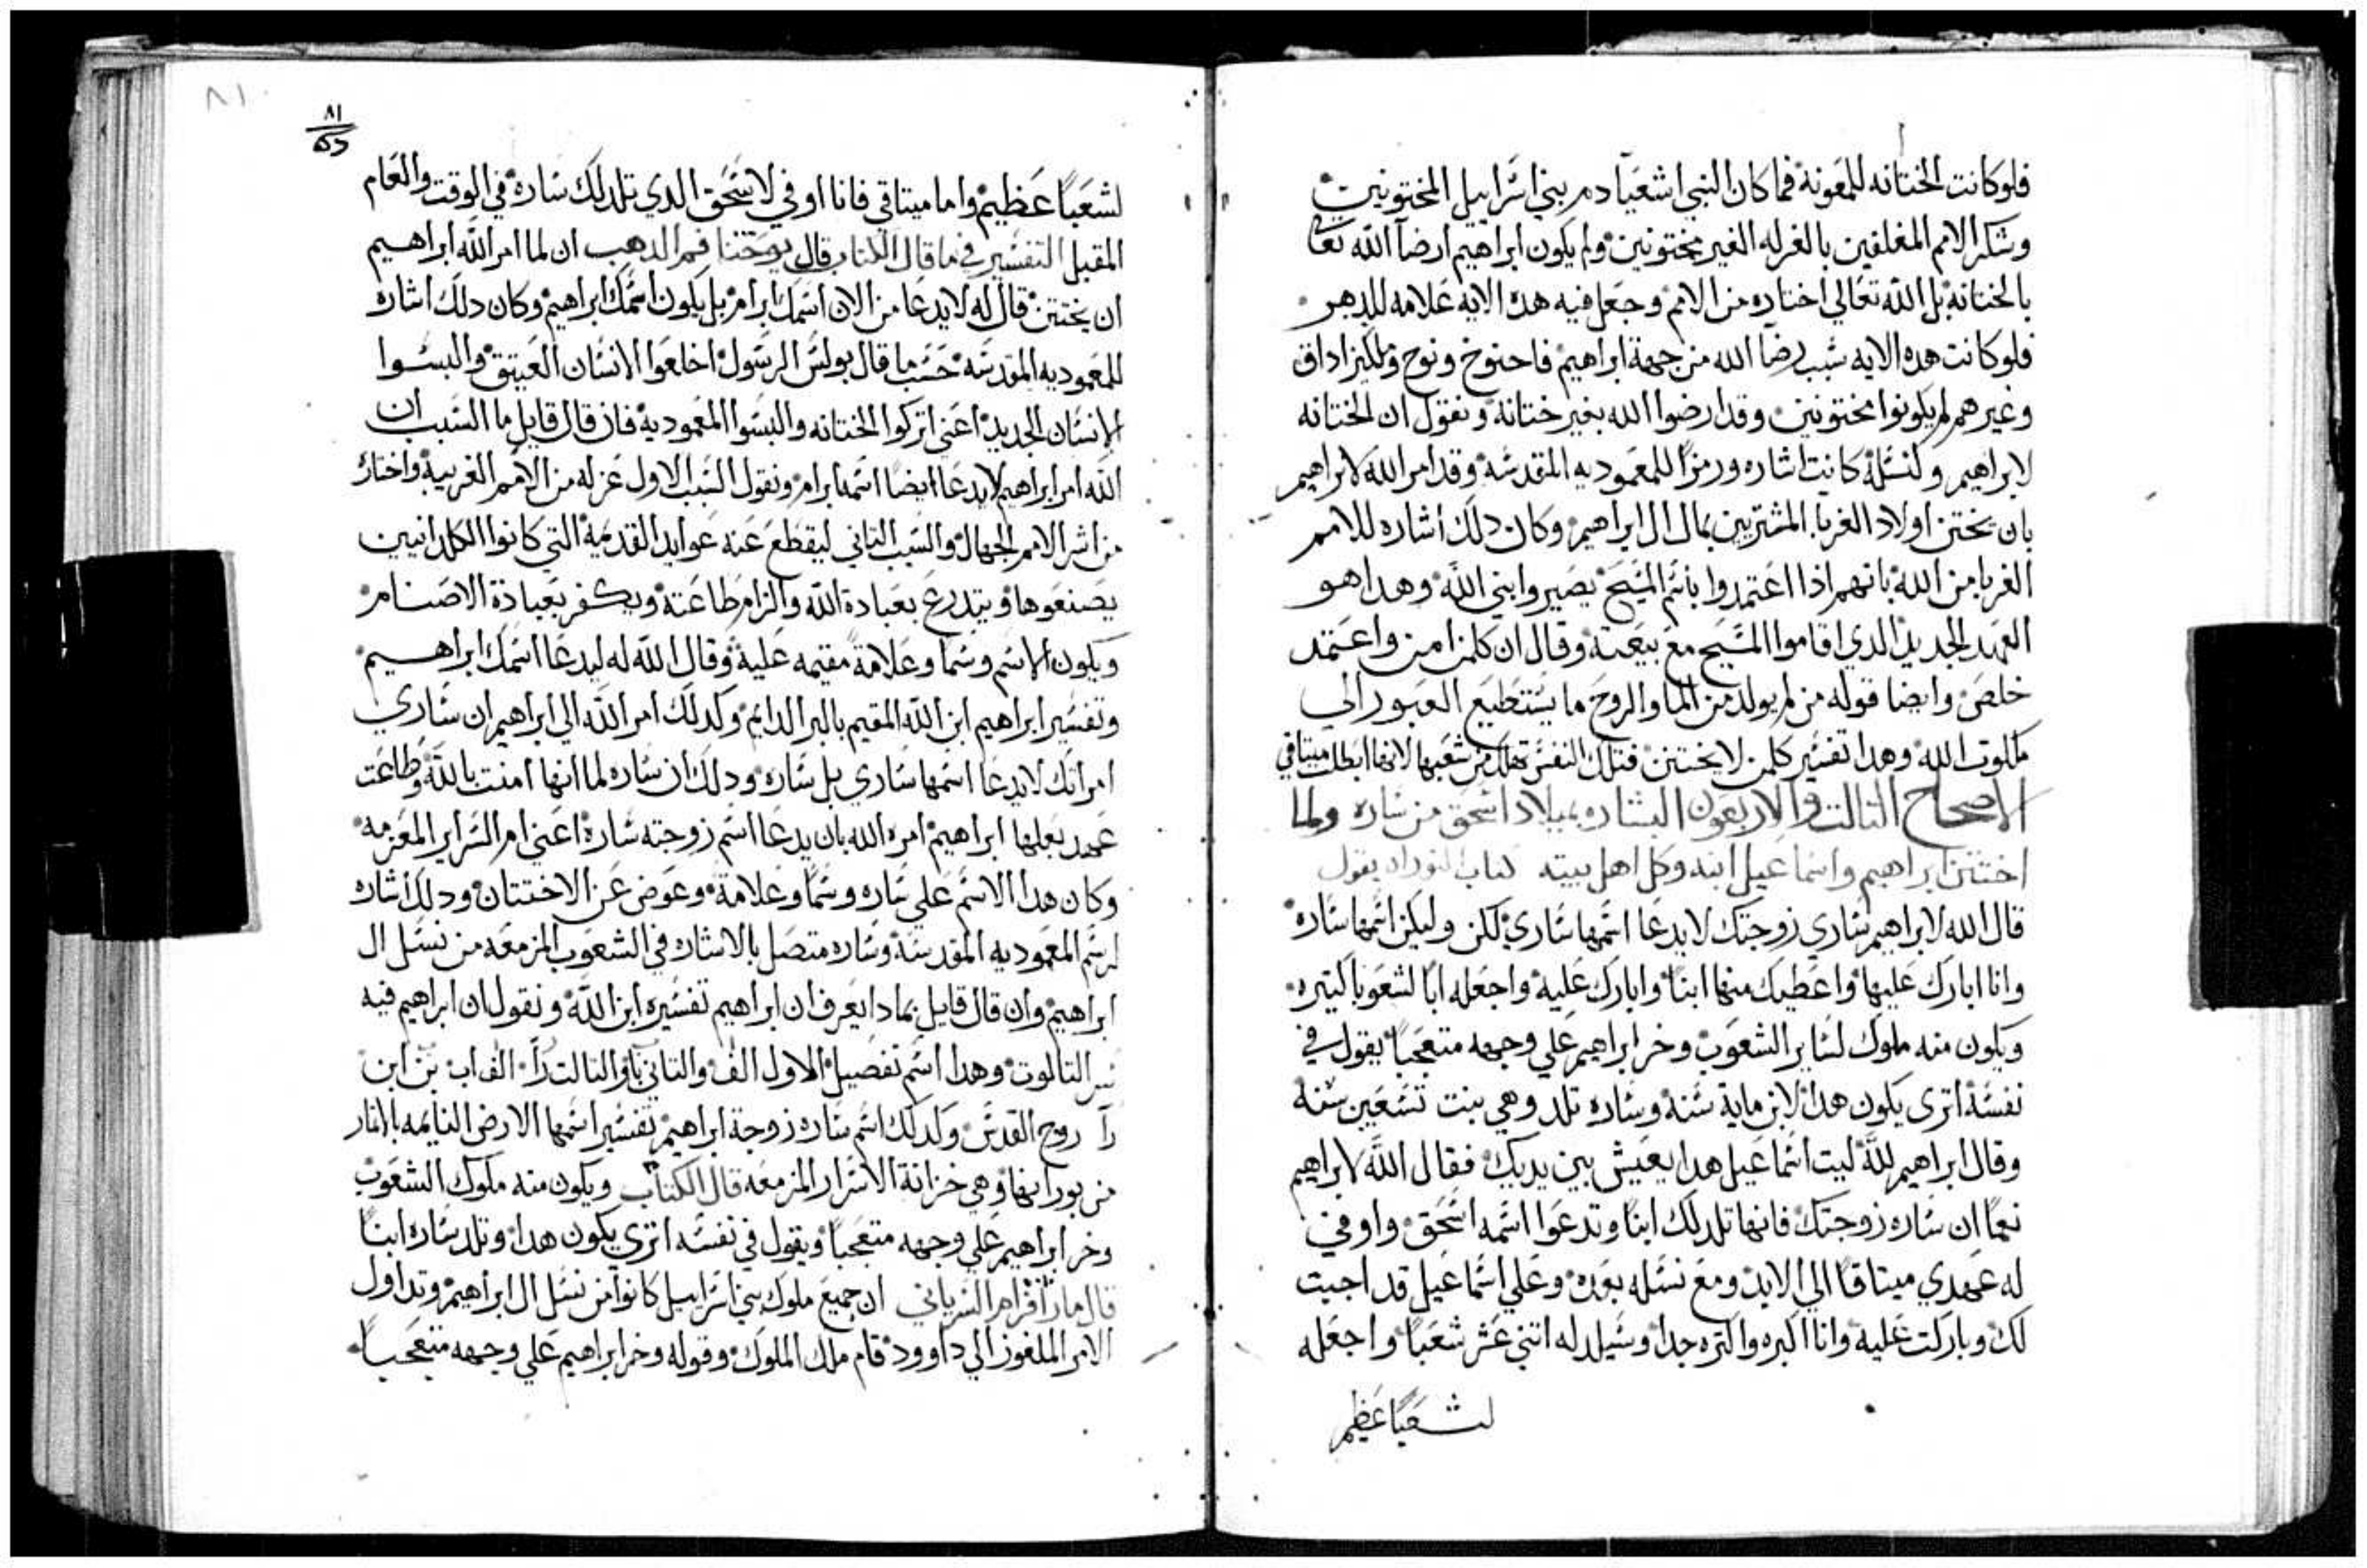 فلوكانت الختانه للمعونة فما كان النبي اشعيا دم بني اسراييل المختونين
وشكر الامم المغلفين بالغرله الغير مختونين ولم يكون ابراهيم ارضا الله تعا
بالختانة بل الله تعالي اختاره من الامم وجعل فيه هده الايه علامه للدهر
فلوكانت هده الايه سبب رضا الله من جهة ابراهيم فاحنوخ ونوح وملكيزاداق
وغيرهم لم يكونوا مختونين وقد ارضوا الله بغير ختانة ونقول ان الختانه
لابراهيم ولنسله كانت اشاره ورمزا للمعموديه المقدسه وقد امر الله لابراهيم
بان يختن اولاد الغربا المشتريين بمال ال ابراهيم وكان دلك اشاره للامم
الغربا من الله بانهم ادا اعتمدوا باسم المسيح يصيروا بني الله وهدا هو
العهد الجديد الدي اقاموا المسيح مع بيعته وقال ان كلمن امن واعتمد
خلص وايضا قوله من لم يولد من الما والروح ما يستطيع العبور الي
ملكوت الله وهدا تفسير كلمن لا يختتن فتلك النفس تهلك من شعبها لانها ابطلت ميتاقي
الاصحاح التالت والاربعون البشاره بميلاد اسحق من ساره ولما
اختتن ابراهيم واسماعيل ابنه وكل اهل بيته كتاب التوراه يقول
قال الله لابراهيم ساري زوجتك لا يدعا اسمها ساري لكن وليكن اسمها ساره
وانا ابارك عليها واعطيك منها ابنا وابارك عليه واجعله ابا لشعوبا كتيره
ويكون منه ملوك لساير الشعوب وخر ابراهيم علي وجهه متعجبا يقول في
نفسه اترى يكون هدا لابن ماية سنه وساره تلد وهي بنت تسعين سنه
وقال ابراهيم لله ليت اسماعيل هدا يعيش بين يديك فقال الله لابراهيم
نعما ان ساره زوجتك فانها تلد لك ابنا وتدعوا اسمه اسحق واوفي
له عهدي ميتاقا الي الابد ومع نسله بعده وعلي اسماعيل قد اجبت
لك وباركت عليه وانا اكبره واكتره جدا وسيلد له اتني عشر شعبا واجعله
لشعبا عظيم
٨١
٨١
لشعبا عظيم واما ميتاقي فانا اوفي لاسحق الدي تلد لك ساره في الوقت والعام
المقبل التفسير في ما قال الكتاب قال يوحنا فم الدهب ان لما امر الله ابراهيم
ان يختتن قال له لا يدعا من الان اسمك ابرام بل يكون اسمك ابراهيم وكان دلك اشاره
للمعموديه المقدسه حسب ما قال بولس الرسول اخلعوا الانسان العتيق والبسوا
الانسان الجديد اعني اتركوا الختانه والبسوا المعمودية فان قال قايل ما السبب ان
الله امر ابراهيم لا يدعا ايضا اسمه ابرام ونقول السبب الاول عزله من الامم الغريبة واختاره
من اشر الامم الجهال والسبب التاني ليقطع عنه عوايد القديمة التي كانوا الكلدانيين
يصنعوها ويتدرع بعبادة الله والزام طاعته ويكفر بعبادة الاصنام
ويكون الاسم وسما وعلامة مقيمه عليه وقال الله له ليدعا اسمك ابراهيم
وتفسير ابراهيم ابن الله المقيم بالبر الدايم وكدلك امر الله الي ابراهيم ان ساري
امراتك لا يدعا اسمها ساري بل ساره ودلك ان ساره لما انها امنت بالله وطاعت
عهد بعلها ابراهيم امره الله بان يدعا اسم زوجته سارة اعني ام السراير المعزمه
وكان هدا الاسم علي ساره وسما وعلامة وعوض عن الاختتان ودلك اشاره
لرسم المعموديه المقدسة وساره متصل بالاشاره في الشعوب المزمعه من نسل ال
ابراهيم وان قال قايل بمادا يعرف ان ابراهيم تفسيره ابن الله ونقول ان ابراهيم فيه
سر التالوت وهدا اسم تفصيل الاول الف والتاني با والتالت را الف اب بن ابن
را روح القدس وكدلك اسم ساره زوجة ابراهيم تفسير اسمها الارض النايمه بالاتمار
من وهي خزانة الاسرار المزمعه قال الكتاب ويكون منه ملوك الشعوب
وخر ابراهيم علي وجهه متعجبا ويقول في نفسه اتري يكون هدا وتلد ساره ابنا
قال مار افرام السرياني ان جميع ملوك بني اسراييل كانوا من نسل ال ابراهيم وتداول
الامر الملغوز الي داوود قام ملك الملوك وقوله وخر ابراهيم علي وجهه متعجبا